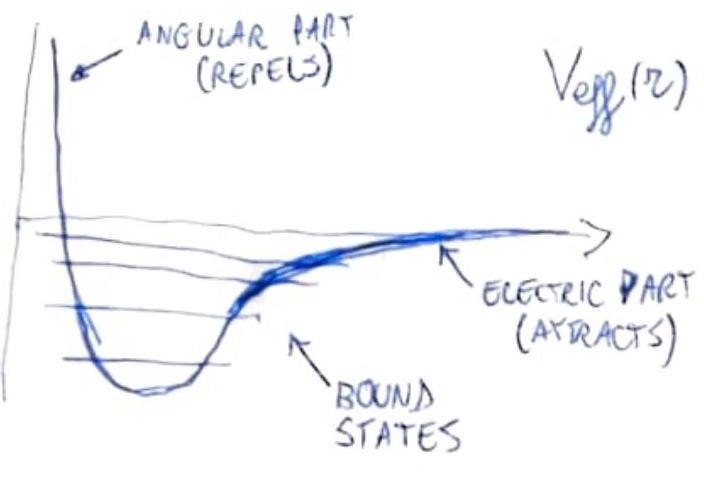 ANGULAR PART
(REPELS)
Veff(r)
ELECTRIC PART
(ATTRACTS)
BOUND
STATES